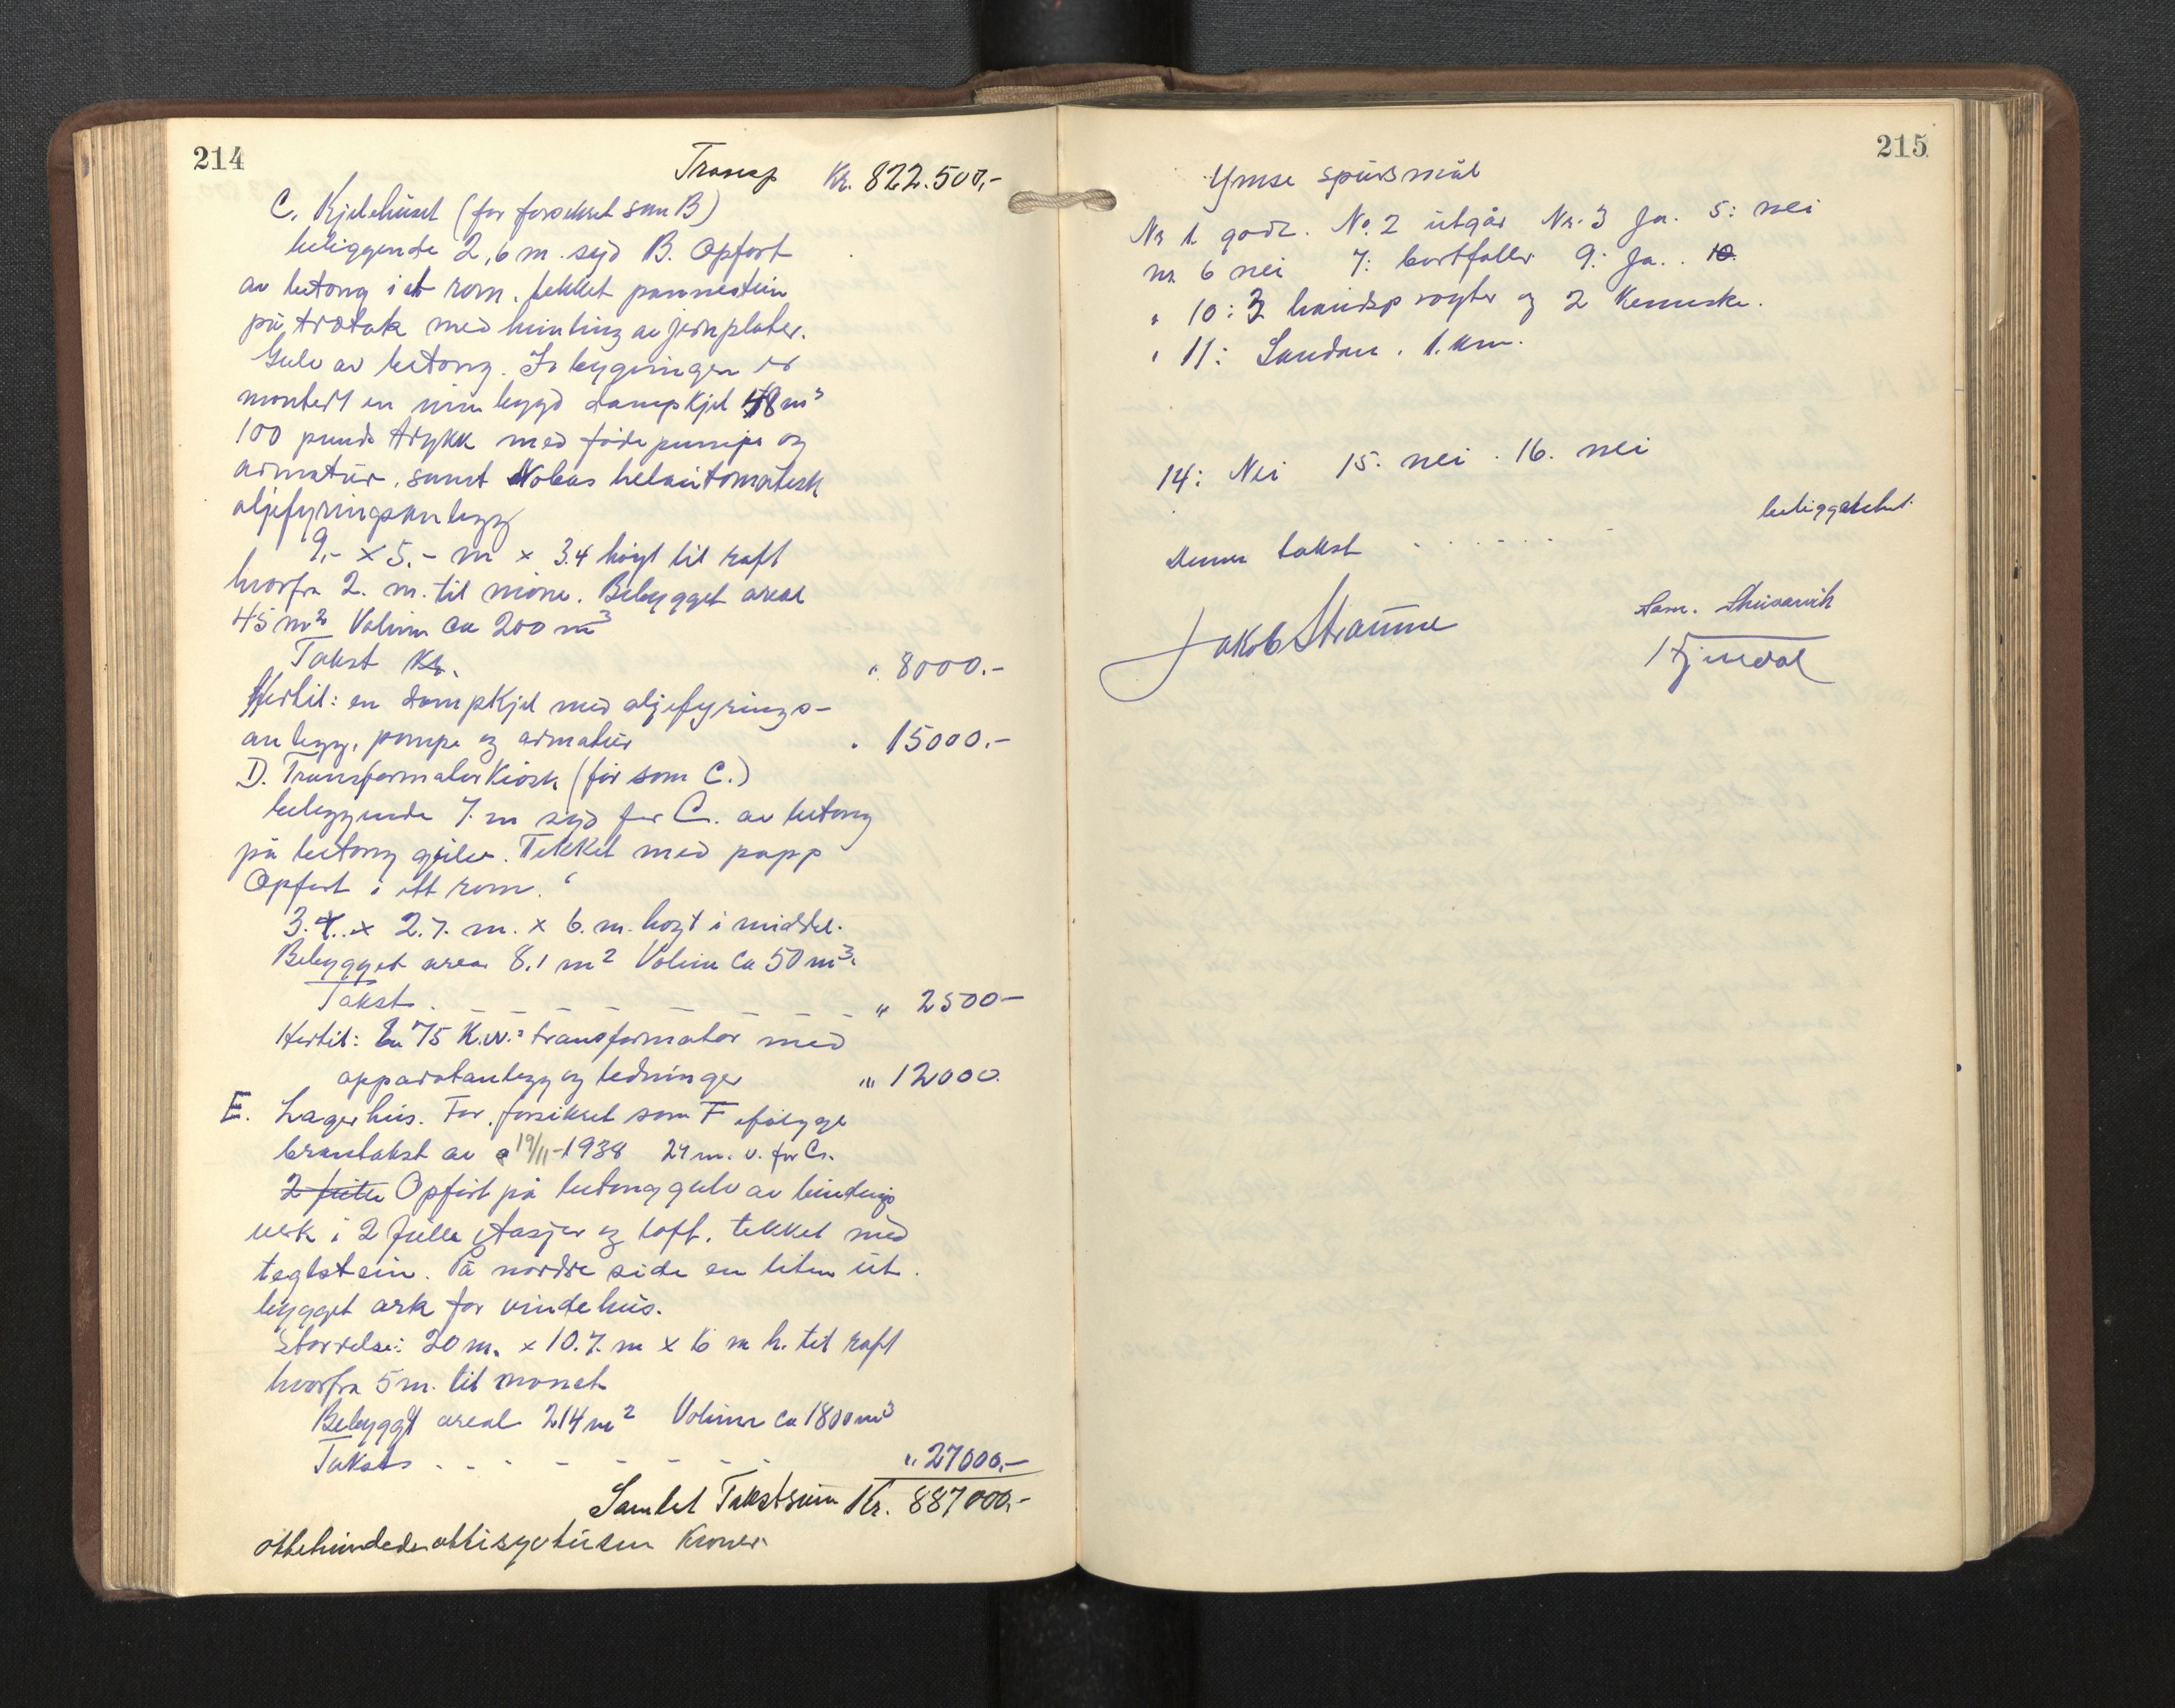 214
Transp Kr. 822.500,-
C. Kjelehuset (før forsikret som B)
beliggende 2,6 m. syd B. Opført
av betong i et rom, tekket pannestein
på tretak med himling av jernplater.
Gulv av betong. I bygningen er
montert en innbygd dampkjel 48 m²
100 punds trykk med fødepumpe og
armatur, samt Nobas helautomatisk
oljefyringsanlegg
9,- x 5,- m x 3.4 høyt til raft
hvorfra 2. m. til møne. Bebygget areal
45 m² Volum ca 200 m³
Takst Kr. " 8000.-
Hertil: en dampkjel med oljefyrings-
anlegg, pumpe og armatur " 15000.-
D. Transformatorkiosk (før som C.)
beliggende 7. m syd for C. av betong
på betong gulv. Tekket med papp
Opført i ett rom.
3.4. x 2.7. m. x 6. m. høyt i middel.
Bebygget area 8,1 m² Volum ca 50 m³.
Takst. " 2500-
Hertil: En 75 K.W.s transformator med
apparatanlegg og ledninger " 12000.
E. Lagerhus. Før forsikret som F ifølge
branntakst av 19/11-1938 24 m. v. for C.
2 fulle Opført på betonggulv av bindings
verk i 2 fulle etasjer og loft, tekket med
teglstein. På nordre side en liten ut
bygget ark for vindehus.
Størrelse: 20 m. x 10.7. m x 6 m h. til raft
hvorfra 5 m. til mønet
Bebyggt areal 214 m² Volum ca 1800 m³
Takst " 27000,-
Samlet Takstsum Kr. 887000,-
ottehundredeottisyvtusen Kroner
215
Ymse spursmål
Nr 1 godt. No. 2 utgår Nr. 3 Ja. 5: nei
nr. 6 nei 7: bortfaller 9: Ja. 10.
" 10: 3 håndsprøyter og 2 kemiske.
" 11: Sundan. 1. km.
14: Nei 15. nei. 16. nei
Denne takst . . . . . .
Jakob Straume